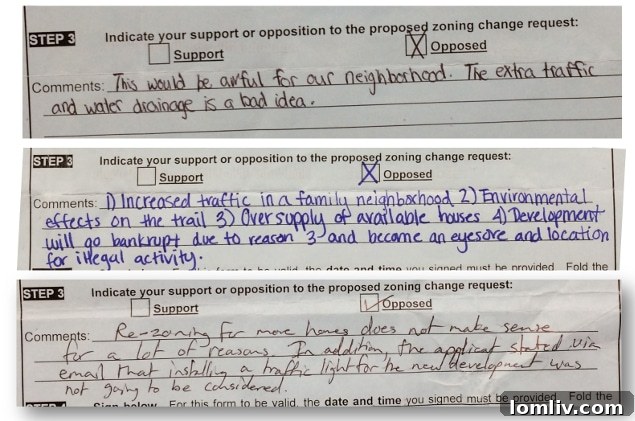 STEP 3
Indicate your support or opposition to the proposed zoning change request:
Support
Opposed
Comments: This would be awful for our neighborhood. The extra traffic
and water drainage is a bad idea.
STEP 3
Indicate your support or opposition to the proposed zoning change request:
Support
Opposed
Comments: 1) Increased traffic in a family neighborhood 2) Environmental
effects on the trail 3) Over supply of available houses 4) Development
will go bankrupt due to reason 3 and become an eyesore and location
for illegal activity.
this form to be valid, the date and time you signed must be provided. Fold the
STEP 3
Indicate your support or opposition to the proposed zoning change request:
Support
Opposed
Comments: Re-zoning for more homes does not make sense
for a lot of reasons. In addition, the applicat stated via
email that installing a traffic light for the new development was
not going to be considered.
Sign below. For this form to be valid, the date and time you signed must be provided. Fold the
lomliv.com